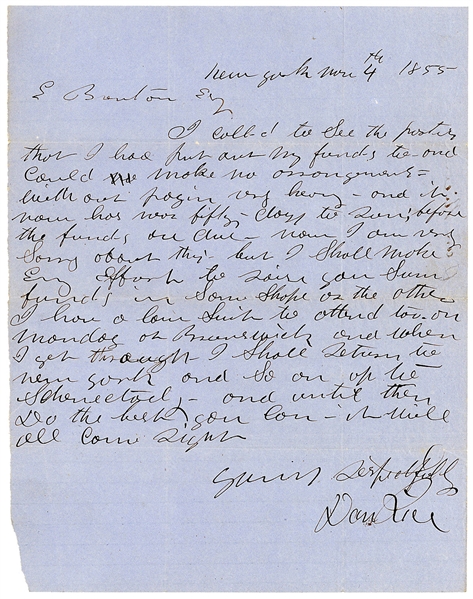 New york nov 4th 1855
E Banton Esq
I calld to See the partys
that I had put out my funds to and
Could make no arrangements
without payin very heavy - and it
now has over fifty - days to run before
the funds are due - now I am very
Sorry about this - but I Shall make
Every effort to raise you Sum
funds in Some Shape or the other
I have a law Suit to attend to on
Monday at Brunswick and when
I get through I Shall return to
new york and So on up to
Schenectady - and until then
Do the best you can - it will
all Come right
yours respectfully
Dan Rice